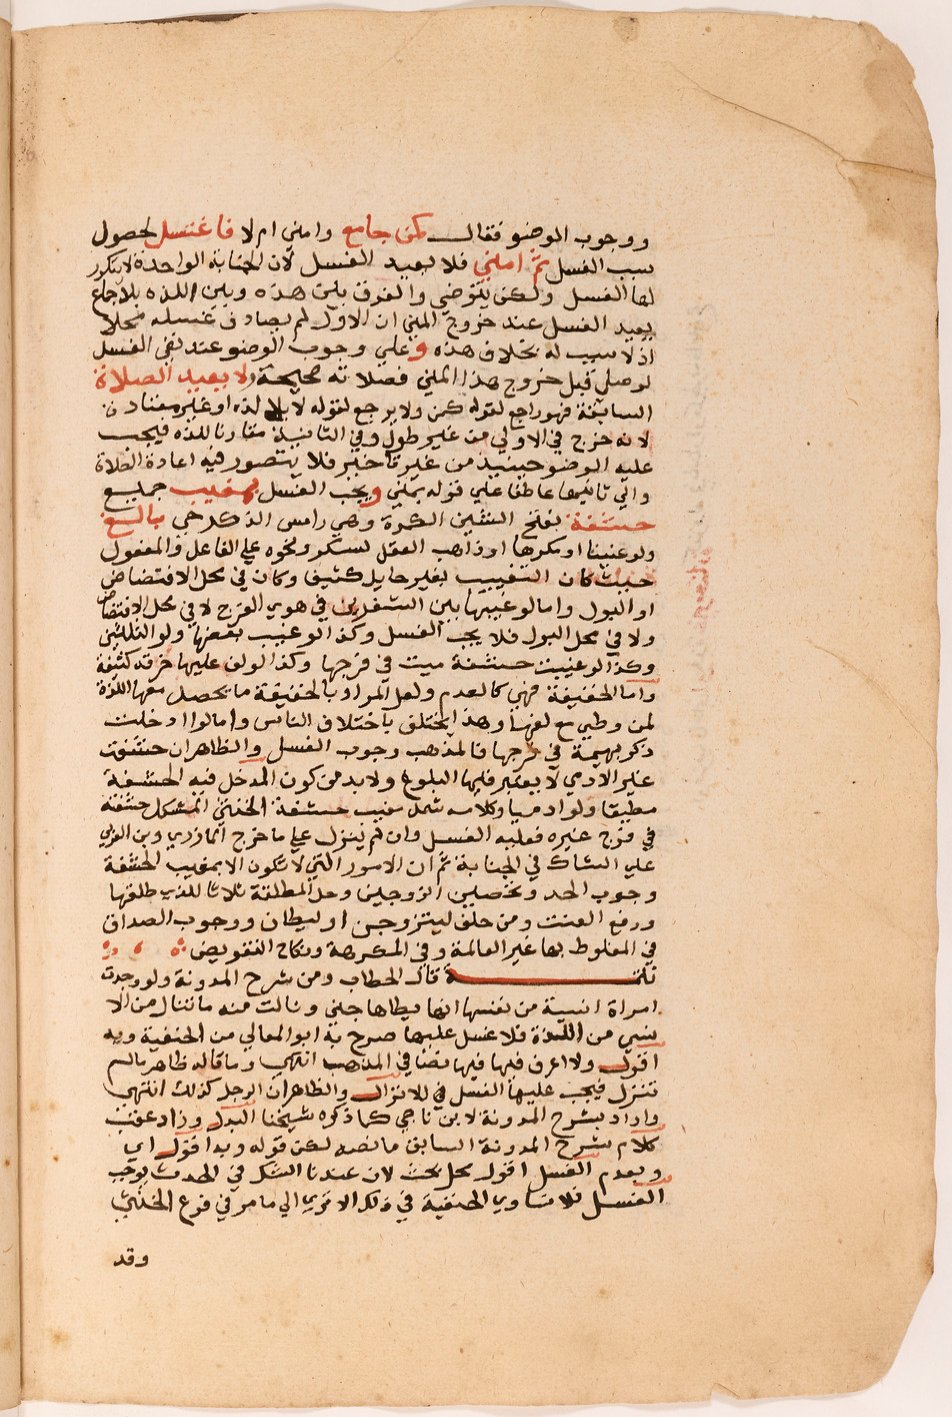 ووجوب الوضو فقال كمن جامع وامني ام لا فاغتسل لحصول
سبب الغسل ثم امني فلا يعيد الغسل لان الجنابة الواحدة لا يتكرر
لها الغسل ولكن يتوضي والفرق بين هذه وبين اللذه بلا جماع
يعيد الغسل عند خروج المني ان الاول لم يصادف غسله محلا
اذ لا سبب له بخلاف هذه وعلي وجوب الوضو عند نفي الغسل
لو صلي قبل خروج هذا المني فصلاته صحيحة ولا يعيد الصلاة
السابقة فهو راجع لقوله كمن ولا يرجع لقوله لا بلا لذه او غير معتاد
لانه خرج في الاولي من غير طول وفي الثانية مقارنا للذه فيجب
عليه الوضو حينيذ من غير تاخير فلا يتصور فيه اعادة الصلاة
والي ثانيها عاطفا علي قوله بمني ويجب الغسل بمغيب جميع
حشفة بفتح الشين الكمرة وهي راس الذكر حي بالغ
ولو عنينا او مكرها او ذاهب العقل لسكر ونحوه علي الفاعل والمفعول
حيث كان التغييب بغير حايل كثيف وكان في محل الافتضاض
او البول واما لو غيبها بين الشفرين في هوي الفرج لا في محل الافتضاض
ولا في محل البول فلا يجب الغسل وكذا لو غيب بعضها ولو الثلثين
وكذا لو غيبت حشفة ميت في فرجها وكذا لو لف عليها خرقة كثيفة
واما الخفيفة فهي كالعدم ولعل المراد بالخفيفة ما يحصل معها اللذة
لمن وطي مع لفها وهذا يختلف باختلاف الناس واما لو ادخلت
ذكر بهيمة في فرجها فالمذهب وجوب الغسل والظاهر ان حشفة
غير الادمي لا يعتبر فيها البلوغ ولا بد من كون المدخل فيه الحشفة
مطيقا ولو ادميا وكلامه شمل مغيب حشفة الخنثي المشكل حشفته
في فرج غيره فعليه الغسل وان لم ينزل علي ما خرج المازري وبن العربي
علي الشاك في الجنابة ثم ان الامور التي لا تكون الا بمغيب الحشفة
وجوب الحد وتحصين الزوجين وحل المطلقة ثلاثا للذي طلقها
ورفع العنت ومن حلف ليتزوجن او ليطان ووجوب الصداق
في المغلوط بها غير العالمة وفي المكرهة ونكاح التفويض
تتمة قال الحطاب ومن شرح المدونة ولو وجدت
امراة انسية من نفسها انها يطاها جني ونالت منه ما تنال من الا
نسي من اللذة فلا غسل عليها صرح به ابو المعالي من الحنفية وبه
اقول ولا اعرف فيها فيها نصا في المذهب انتهي وما قاله ظاهر ما لم
تنزل فيجب عليها الغسل في للانزال والظاهر ان الرجل كذلك انتهي
واراد بشرح المدونة لابن ناجي كما ذكره شيخنا البدل وزاد عقب
كلام شرح المدونة السابق ما نصه لكن قوله وبه اقول اي
وبعدم الغسل اقول محل بحث لان عندنا الشك في الحدث يوجب
الغسل فلا تساوي الحنفية في ذلك الا قربي الي ما مر في فرع الخنثي
وقد